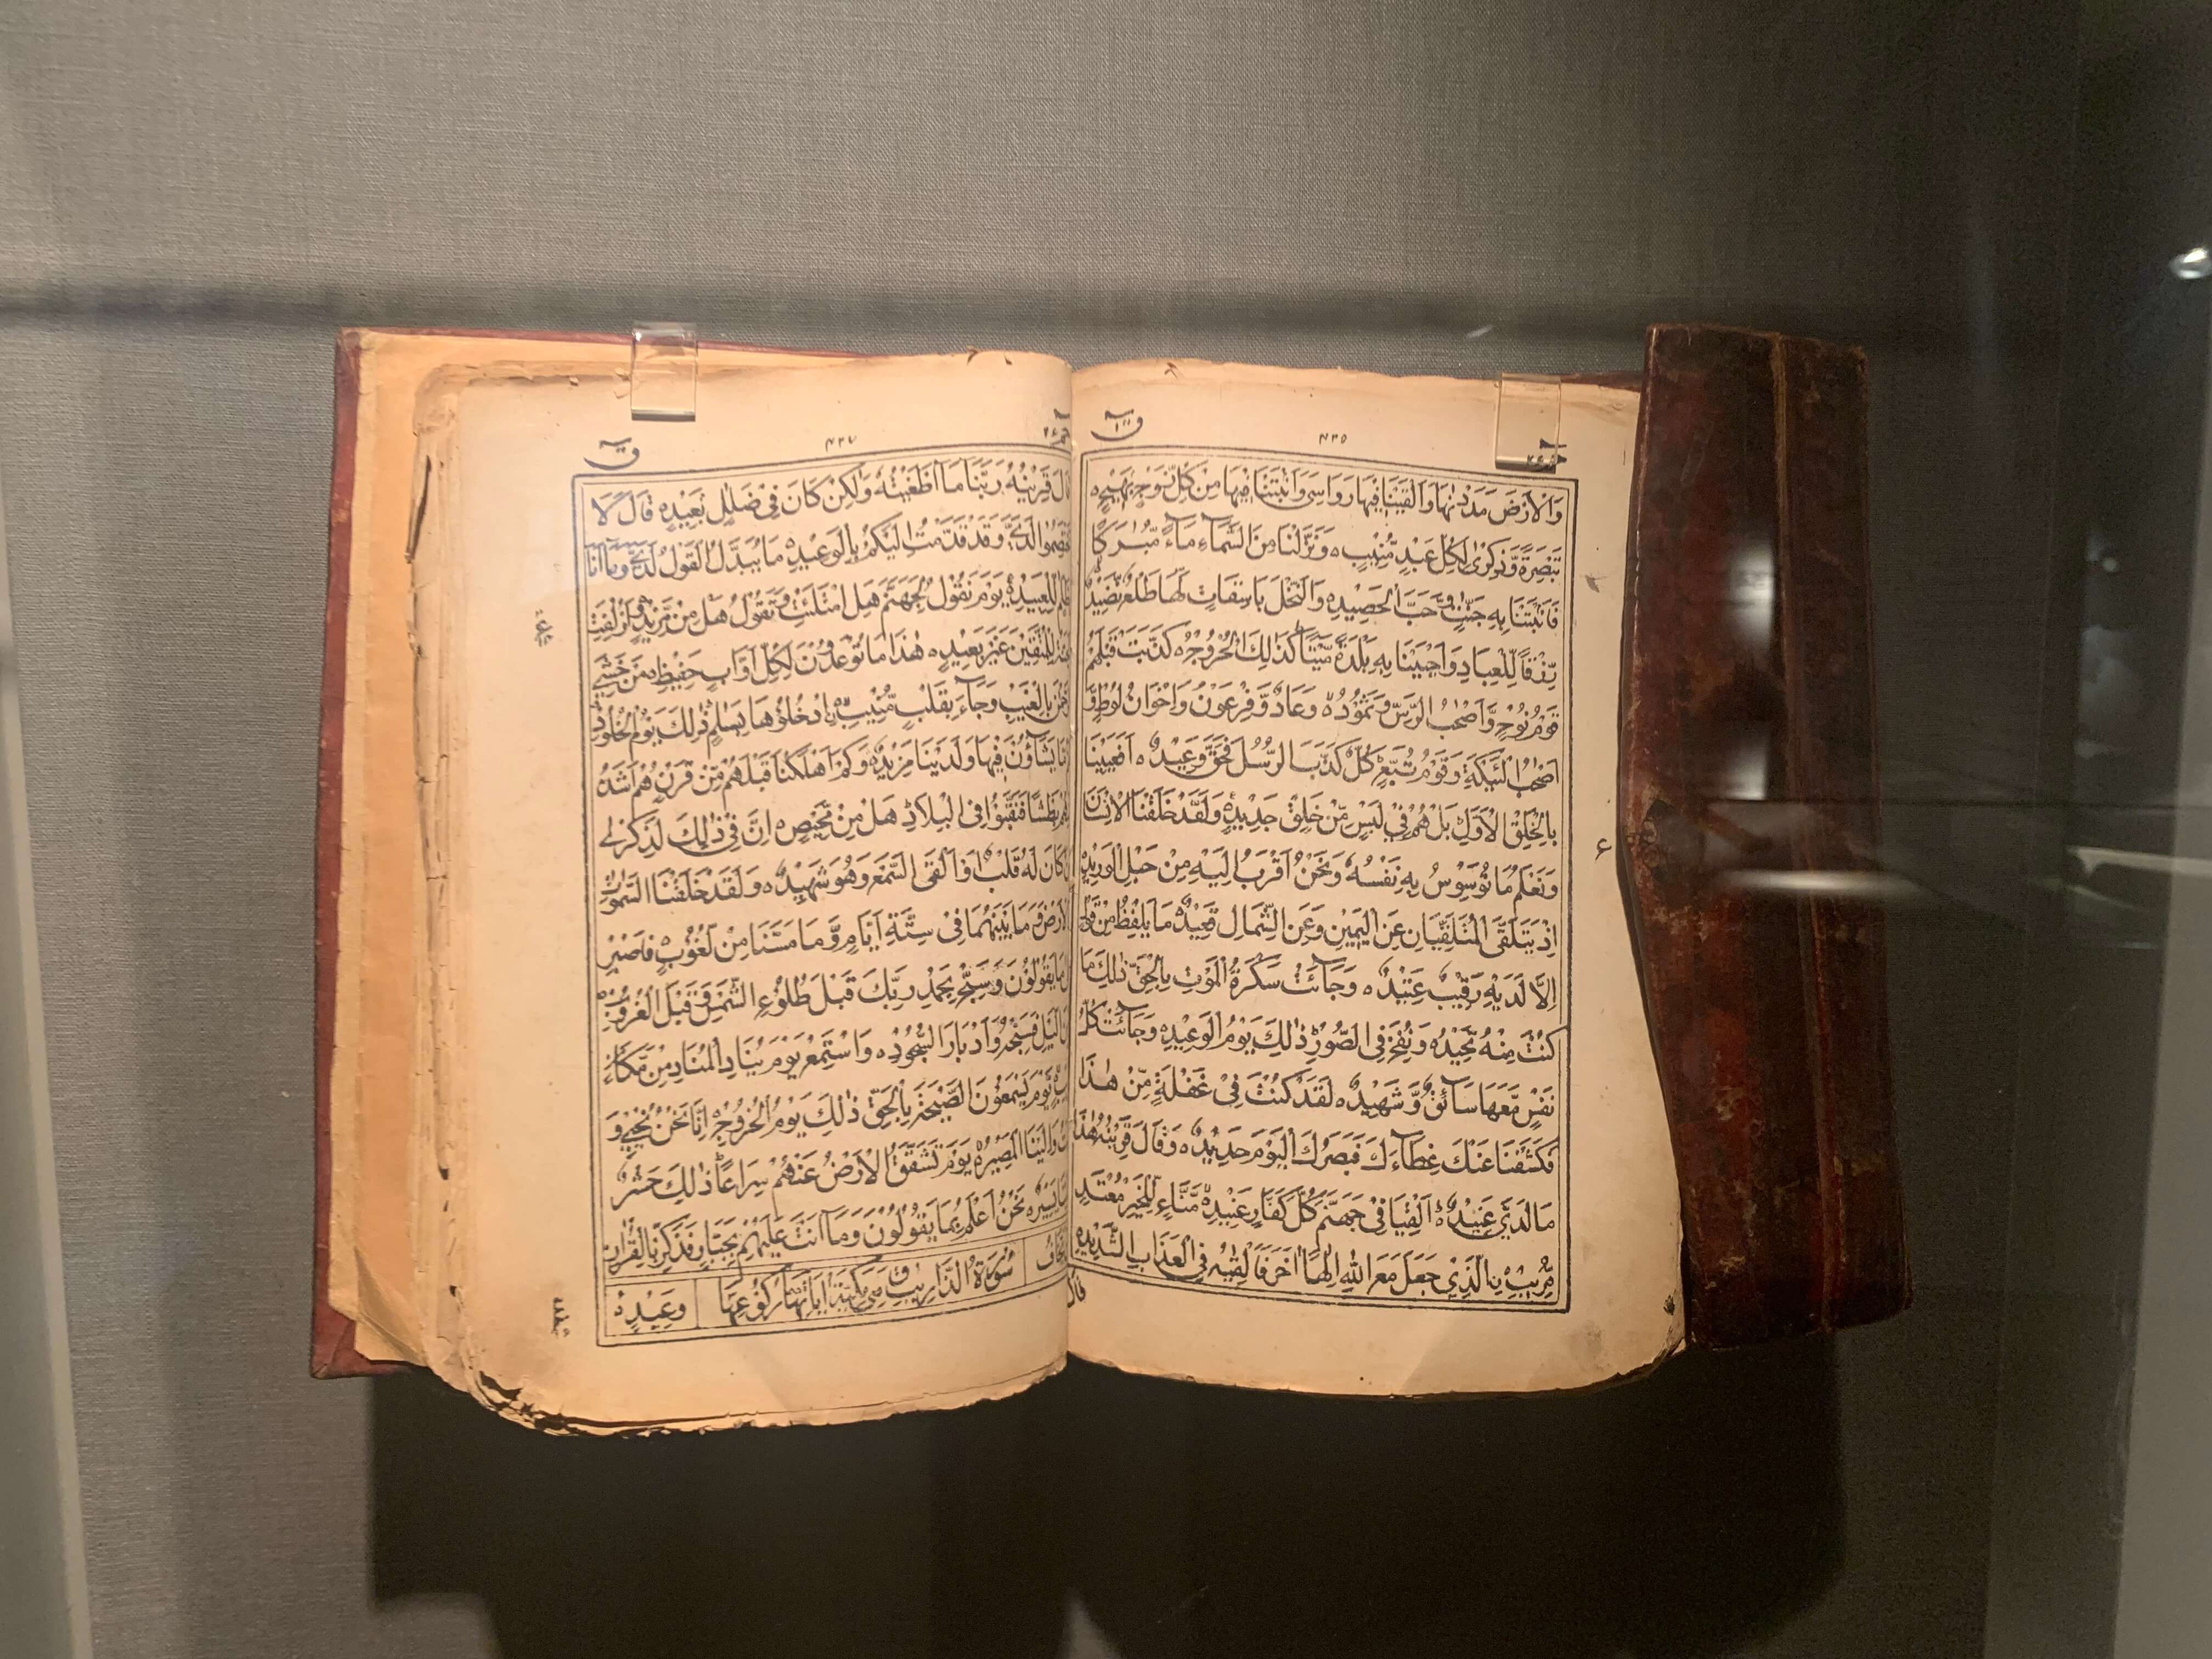 قۤ
٤٣٥
حم ٢٦
وَالْاَرْضَ مَدَدْنٰهَا وَاَلْقَيْنَا فِيْهَا رَوَاسِىَ وَاَنْبَتْنَا فِيْهَا مِنْ كُلِّ زَوْجٍ بَهِيْجٍ ه
تَبْصِرَةً وَّذِكْرٰى لِكُلِّ عَبْدٍ مُّنِيْبٍ ه وَنَزَّلْنَا مِنَ السَّمَآءِ مَآءً مُّبٰرَكًا
فَاَنْبَتْنَا بِهٖ جَنّٰتٍ وَّحَبَّ الْحَصِيْدِ ه وَالنَّخْلَ بَاسِقَاتٍ لَّهَا طَلْعٌ نَّضِيْدٌ
رِّزْقًا لِّلْعِبَادِ وَاَحْيَيْنَا بِهٖ بَلْدَةً مَّيْتًا كَذٰلِكَ الْخُرُوْجُ ه كَذَّبَتْ قَبْلَهُمْ
قَوْمُ نُوْحٍ وَّاَصْحٰبُ الرَّسِّ وَثَمُوْدُ ه وَعَادٌ وَّفِرْعَوْنُ وَاِخْوَانُ لُوْطٍ وَّ
اَصْحٰبُ الْئَيْكَةِ وَقَوْمُ تُبَّعٍ كُلٌّ كَذَّبَ الرُّسُلَ فَحَقَّ وَعِيْدِ ه اَفَعَيِيْنَا
بِالْخَلْقِ الْاَوَّلِ بَلْ هُمْ فِيْ لَبْسٍ مِّنْ خَلْقٍ جَدِيْدٍ ه وَلَقَدْ خَلَقْنَا الْاِنْسَانَ
وَنَعْلَمُ مَا تُوَسْوِسُ بِهٖ نَفْسُهٗ وَنَحْنُ اَقْرَبُ اِلَيْهِ مِنْ حَبْلِ الْوَرِيْدِ
اِذْ يَتَلَقَّى الْمُتَلَقِّيَانِ عَنِ الْيَمِيْنِ وَعَنِ الشِّمَالِ قَعِيْدٌ ه مَا يَلْفِظُ مِنْ قَوْلٍ
اِلَّا لَدَيْهِ رَقِيْبٌ عَتِيْدٌ ه وَجَآئَتْ سَكْرَةُ الْمَوْتِ بِالْحَقِّ ذٰلِكَ مَا
كُنْتَ مِنْهُ تَحِيْدُ ه وَنُفِخَ فِى الصُّوْرِ ذٰلِكَ يَوْمُ الْوَعِيْدِ ه وَجَآئَتْ كُلُّ
نَفْسٍ مَّعَهَا سَآئِقٌ وَّشَهِيْدٌ ه لَقَدْ كُنْتَ فِيْ غَفْلَةٍ مِّنْ هٰذَا
فَكَشَفْنَا عَنْكَ غِطَآءَكَ فَبَصَرُكَ الْيَوْمَ حَدِيْدٌ ه وَقَالَ قَرِيْنُهٗ هٰذَا
مَا لَدَيَّ عَتِيْدٌ ه اَلْقِيَا فِيْ جَهَنَّمَ كُلَّ كَفَّارٍ عَنِيْدٍ ه مَّنَّاعٍ لِّلْخَيْرِ مُعْتَدٍ
مُّرِيْبٍ ه نِالَّذِيْ جَعَلَ مَعَ اللّٰهِ اِلٰهًا اٰخَرَ فَاَلْقِيٰهُ فِى الْعَذَابِ الشَّدِيْدِ ه
قال
ع
قۤ
حم ٢٦
قَالَ قَرِيْنُهٗ رَبَّنَا مَا اَطْغَيْتُهٗ وَلٰكِنْ كَانَ فِيْ ضَلٰلٍ بَعِيْدٍ ه قَالَ لَا
تَخْتَصِمُوْا لَدَيَّ وَقَدْ قَدَّمْتُ اِلَيْكُمْ بِالْوَعِيْدِ ه مَا يُبَدَّلُ الْقَوْلُ لَدَيَّ وَمَآ اَنَا
بِظَلَّامٍ لِّلْعَبِيْدِ ه يَوْمَ نَقُوْلُ لِجَهَنَّمَ هَلِ امْتَلَئْتِ وَتَقُوْلُ هَلْ مِنْ مَّزِيْدٍ ه وَاُزْلِفَتِ
الْجَنَّةُ لِلْمُتَّقِيْنَ غَيْرَ بَعِيْدٍ ه هٰذَا مَا تُوْعَدُوْنَ لِكُلِّ اَوَّابٍ حَفِيْظٍ ه مَنْ خَشِيَ
الرَّحْمٰنَ بِالْغَيْبِ وَجَآءَ بِقَلْبٍ مُّنِيْبٍ ه اِدْخُلُوْهَا بِسَلٰمٍ ذٰلِكَ يَوْمُ الْخُلُوْدِ
لَهُمْ مَّا يَشَآؤُنَ فِيْهَا وَلَدَيْنَا مَزِيْدٌ ه وَكَمْ اَهْلَكْنَا قَبْلَهُمْ مِّنْ قَرْنٍ هُمْ اَشَدُّ
مِنْهُمْ بَطْشًا فَنَقَّبُوْا فِى الْبِلَادِ هَلْ مِنْ مَّحِيْصٍ ه اِنَّ فِيْ ذٰلِكَ لَذِكْرٰى لِ
مَنْ كَانَ لَهٗ قَلْبٌ اَوْ اَلْقَى السَّمْعَ وَهُوَ شَهِيْدٌ ه وَلَقَدْ خَلَقْنَا السَّمٰوٰتِ
وَالْاَرْضَ وَمَا بَيْنَهُمَا فِيْ سِتَّةِ اَيَّامٍ وَّمَا مَسَّنَا مِنْ لُّغُوْبٍ ه فَاصْبِرْ
عَلٰى مَا يَقُوْلُوْنَ وَسَبِّحْ بِحَمْدِ رَبِّكَ قَبْلَ طُلُوْعِ الشَّمْسِ وَقَبْلَ الْغُرُوْبِ ه
وَمِنَ الَّيْلِ فَسَبِّحْهُ وَاَدْبَارَ السُّجُوْدِ ه وَاسْتَمِعْ يَوْمَ يُنَادِ الْمُنَادِ مِنْ مَّكَانٍ
قَرِيْبٍ ه يَوْمَ يَسْمَعُوْنَ الصَّيْحَةَ بِالْحَقِّ ذٰلِكَ يَوْمُ الْخُرُوْجِ ه اِنَّا نَحْنُ نُحْيٖ وَ
نُمِيْتُ وَاِلَيْنَا الْمَصِيْرُ ه يَوْمَ تَشَقَّقُ الْاَرْضُ عَنْهُمْ سِرَاعًا ذٰلِكَ حَشْرٌ
عَلَيْنَا يَسِيْرٌ ه نَحْنُ اَعْلَمُ بِمَا يَقُوْلُوْنَ وَمَآ اَنْتَ عَلَيْهِمْ بِجَبَّارٍ فَذَكِّرْ بِالْقُرْاٰنِ
مَنْ يَخَافُ سُوْرَةُ الذَّارِيٰتِ مَكِّيَّةٌ وَعِيْدِ ه